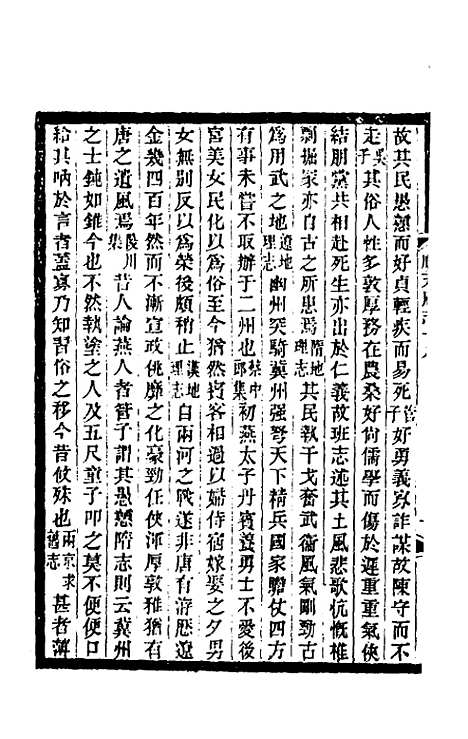 故其民愚戇而好貞輕疾而易死管子好勇義寡詐謀故陳守而不
走吳子其俗人性多敦厚務在農桑好尚儒學而傷於遲重重氣俠
結朋黨共相赴死生亦出於仁義故班志述其土風悲歌忼慨椎
剽掘冢亦自古之所患焉隋地理志其民執干戈奮武衛風氣剛勁古
爲用武之地遼地理志幽州突騎冀州强弩天下精兵國家贍仗四方
有事未嘗不取辦于二州也蔡中郎集初燕太子丹賓養勇士不愛後
宮美女民化以爲俗至今猶然賓客相過以婦侍宿嫁娶之夕男
女無別反以爲榮後頗稍止漢地理志自兩河之戰遂非唐有游歷遼
金幾四百年然而不漸宣政侈靡之化豪勁任俠渾厚敦雅猶有
唐之遺風焉陵川集昔人論燕人者管子謂其愚戇隋志則云冀州
之士鈍如錐今也不然執塗之人及五尺童子叩之莫不便便口
給其吶於言者蓋寡乃知習俗之移今昔攸殊也兩京求舊志甚者薄